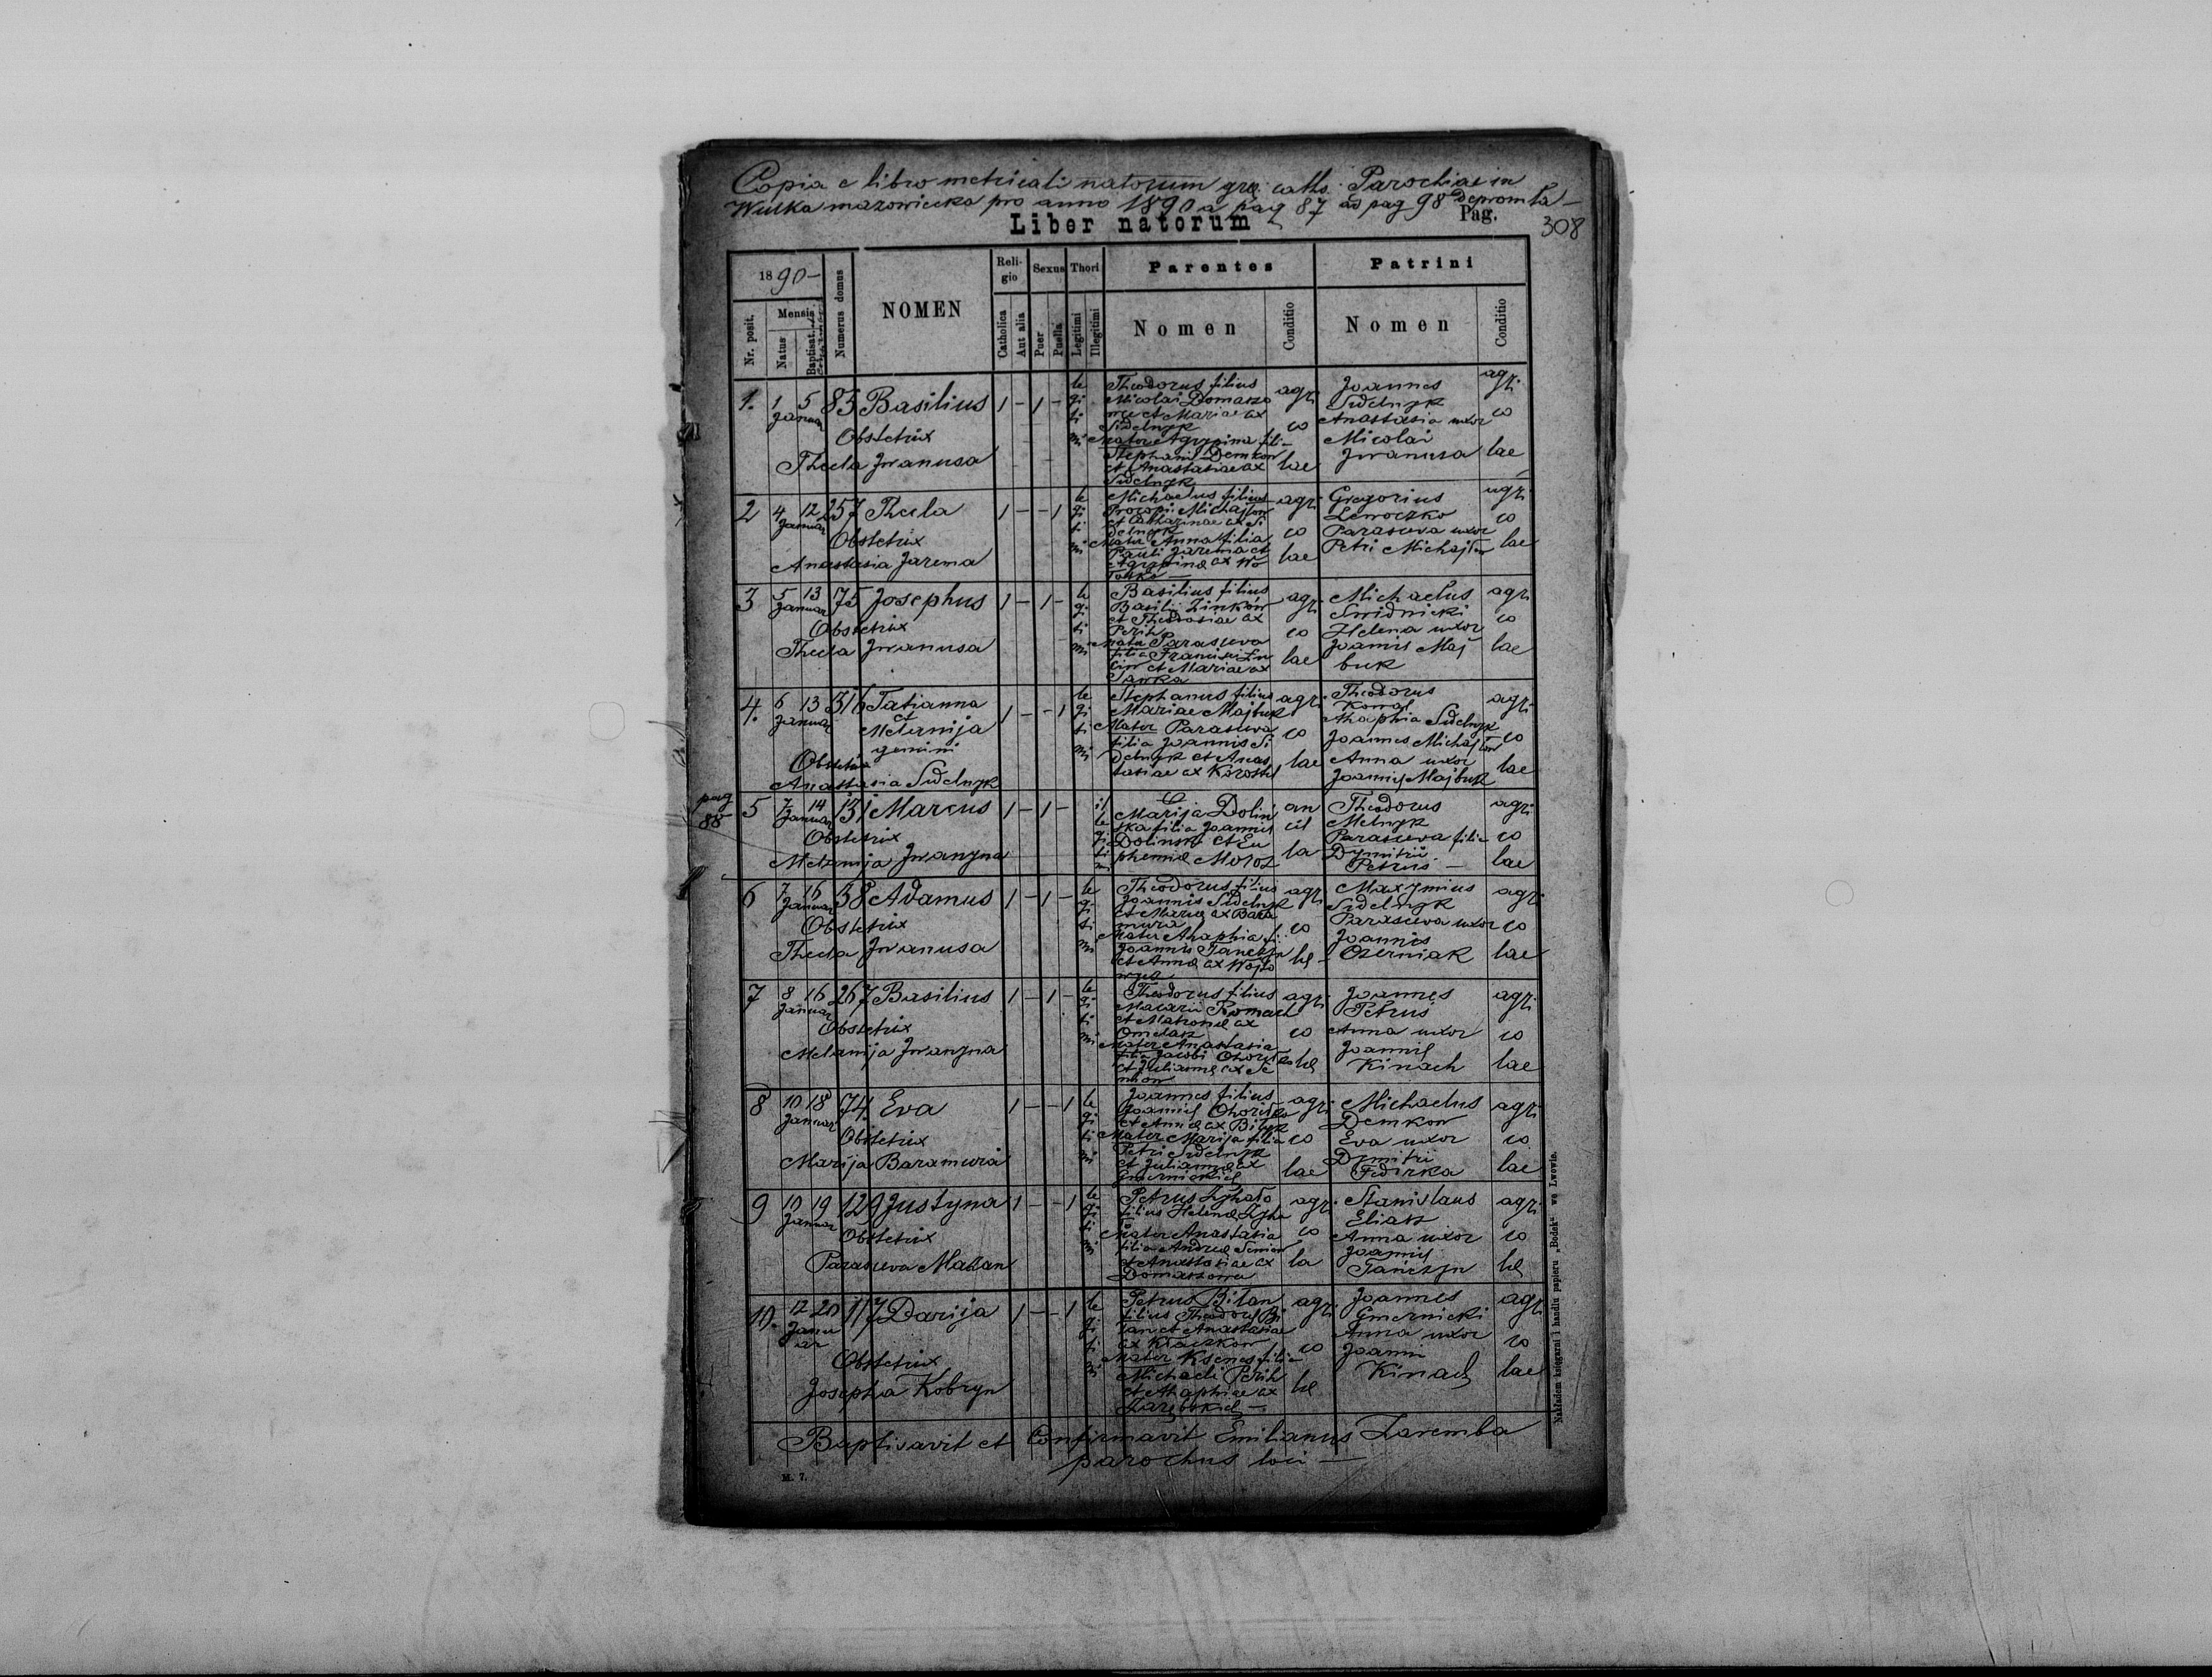 Copia e libro metricali natorum gre: cath: Parochiae in
Wulka mazowiecka pro anno 1890 a pag 87 ad pag 98 depromta
Liber natorum Pag.
308
1890
Nr. posit.
Mensis
Natus
Baptisat.
Numerus domus
NOMEN
Religio
Catholica
Aut alia
Sexus
Puer
Puella
Thori
Legitimi
Illegitimi
Parentes
Nomen
Conditio
Patrini
Nomen
Conditio
1. 1 5 Januar 83 Basilius 1 - 1 -
Obstetrix
Thecla Iwanusa
legitimi
Theodorus filius
Micolai Domaszo
wei et Mariae ex
Sidelnyk
Mater Agrypina fili-
Stephani Demkow
et Anastasiae ex
Sidelnyk
agricolae
Joannes
Sidelnyk
Anastasia uxor
Micolai
Iwanusa
agricolae
2 4 12 Januar 257 Thecla 1 - - 1
Obstetrix
Anastasia Jarema
legitimi
Michaelus filius
Procopi Michajlow
et Catharinae ex Si
delnyk
Mater Anna filia
Pauli Jarema et
Agrypinae ex Wo
agricolae
Gregorius
Lewoczko
Parasceva uxor
Petri Michajlow
agricolae
3 5 13 Januar 75 Josephus 1 - 1 -
Obstetrix
Thecla Iwanusa
legitimi
Basilius filius
Basilii Zinków
et Theodosiae ex
Perih
Mater Parasceva
filia Francisci Lu
et Mariae ex
agricolae
Michaelus
Swidnicki
Helena uxor
Joannis Maj
buk
agricolae
4. 6 13 Januar 316 Tatianna
et
Melannija
gemini
1 - - 1
Obstetrix
Anastasia Sidelnyk
legitimi
Stephanus filius
Mariae Majbuk
Mater Parasceva
filia Joannis Si
delnyk et Anas
tasiae ex Korostil
agricolae
Theodorus
Kowal
Ahaphia Sidelnyk
Joannes Michajlow
Anna uxor
Joannis Majbuk
agricolae
pag
88
5 7 14 Januar 131 Marcus 1 - 1 -
Obstetrix
Melannija Iwanyna
illegitimi
Marija Dolin
ska filia Joannis
Dolinski et Eu
phemiae Moroz
ancilla
Theodorus
Melnyk
Parasceva filia
Dymitrii
Petrus
agricolae
6 7 16 Januar 38 Adamus 1 - 1 -
Obstetrix
Thecla Iwanusa
legitimi
Theodorus filius
Joannis Sidelnyk
et Mariae ex Bara
mura
Mater Ahaphia fi:
Joannis Tanczyn
et Annae ex Wojto
agricolae
Maxymius
Sidelnyk
Parasceva uxor
Joannis
Ozerniak
agricolae
7 8 16 Januar 267 Basilius 1 - 1 -
Obstetrix
Melannija Iwanyna
legitimi
Theodorus filius
Macarii Romach
et Matronae ex
Omelasz
Mater Anastasia
filia Jacobi Ohoritko
et Juliannae ex Se
nkow
agricolae
Joannes
Petrus
Anna uxor
Joannis
Kinach
agricolae
8 10 18 Januar 74. Eva 1 - - 1
Obstetrix
Marija Baramura
legitimi
Joannes filius
Joannis Ohoritko
et Annae ex Bilyk
Mater Marija filia
Petri Sidelnyk
et Juliannae ex
Gmernickich
agricolae
Michaelus
Demkow
Eva uxor
Dymitri
Fedirka
agricolae
9 10 19 Januar 129 Justyna 1 - - 1
Obstetrix
Parasceva Maslan
legitimi
Petrus Zyhalo
filius Helenae Zyha
Mater Anastasia
filia Andreae
et Anastasiae ex
Domaszowa
agricola
Stanislaus
Eliasz
Anna uxor
Joannis
Tanczyn
agricolae
10. 12 20 Januar 117 Darija 1 - - 1
Obstetrix
Josepha Kobryn
legitimi
Petrus Bilan
filius Theodori Bi
lan et Anastasiae
ex Klaczkow
Mater Ksenes filia
Michaeli Perih
et Ahaphiae ex
Zarębskich
agricolae
Joannes
Gmernicki
Anna uxor
Joannis
Kinach
agricolae
Baptisavit et Confirmavit Emilianus Zaremba
parochus loci
M. 7.
Nakładem księgarni i handlu papieru „Bodek" we Lwowie.